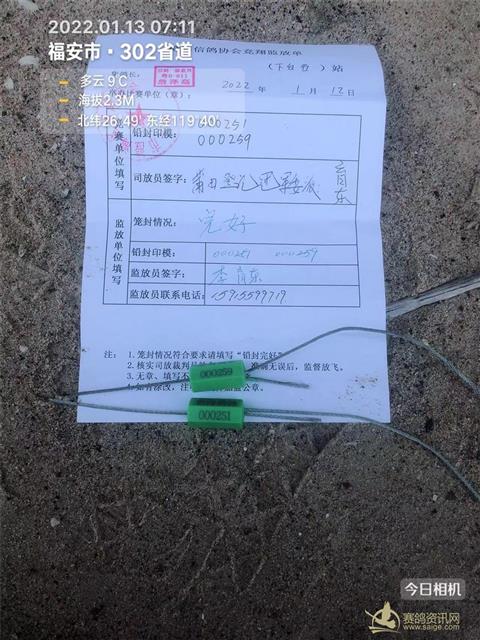 2022.01.13 07:11
福安市·302省道
多云 9℃
海拔2.3M
北纬26.49, 东经119.40
信鸽协会竞翔监放单
(下白石)站
2022 年 1 月 12
000251
铅封印模:
000259
赛单位填写
司放员签字:
监放单位填写
笼封情况: 完好
铅封印模: 000251 000259
监放员签字: 李育东
监放员联系电话: 15915599719
注: 1.笼封情况符合要求请填写“铅封完好”
2.核实司放裁判员
准前无误后,监督放飞。
3.无章、填写不
4.如有涂改,注
公章。
000259
000251
今日相机
赛鸽资讯网
www.saige.com